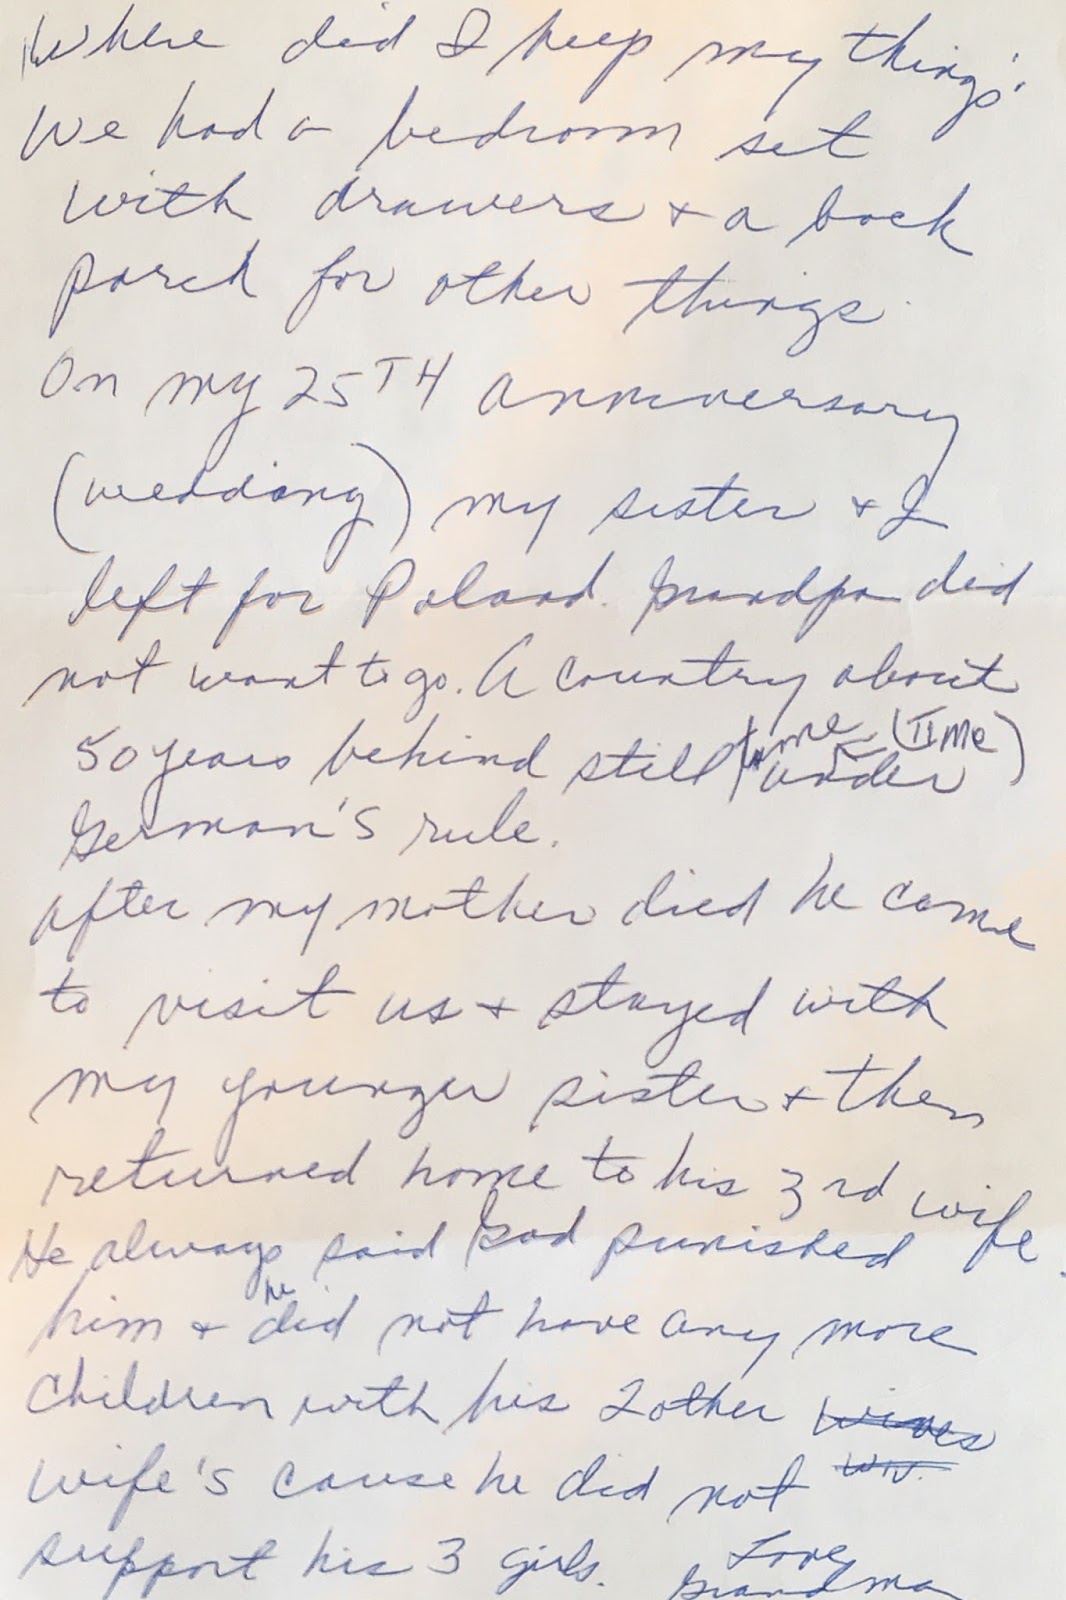 Where did I keep my things.
We had a bedroom set
with drawers + a back
porch for other things.
On my 25TH anniversary
(wedding) my sister + I
left for Poland. Grandpa did
not want to go. A country about
50 years behind still time (TIME)
under
German's rule.
After my mother died he came
to visit us + stayed with
my younger sister + then
returned home to his 3rd wife.
He always said God punished
him + he did not have any more
children with his 2 other wives
wife's cause he did not wiv.
support his 3 girls. Love,
Grandma